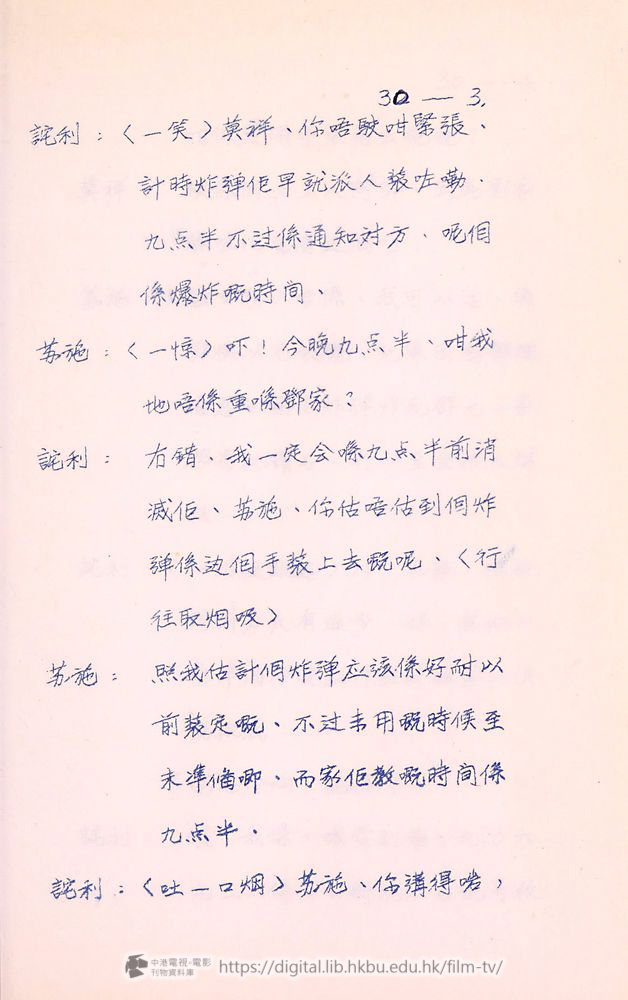 30 — 3.
詫利：〈一笑〉莫祥、你唔駛咁緊張、
計時炸弹佢早就派人裝咗嘞.
九点半不过係通知对方、呢個
係爆炸嘅時間、
苏施：〈一惊〉吓！今晚九点半、咁我
地唔係重喺鄧家？
詫利：冇錯、我一定会喺九点半前消
滅佢、苏施、你估唔估到個炸
弹係边個手裝上去嘅呢、〈行
往取烟吸〉
苏施：照我估計個炸弹应該係好耐以
前裝定嘅、不过未用嘅時候至
未準備啫、而家佢教嘅時間係
九点半.
詫利：〈吐一口烟〉苏施、你講得啱，
中港電視·電影
刊物資料庫
https://digital.lib.hkbu.edu.hk/film-tv/